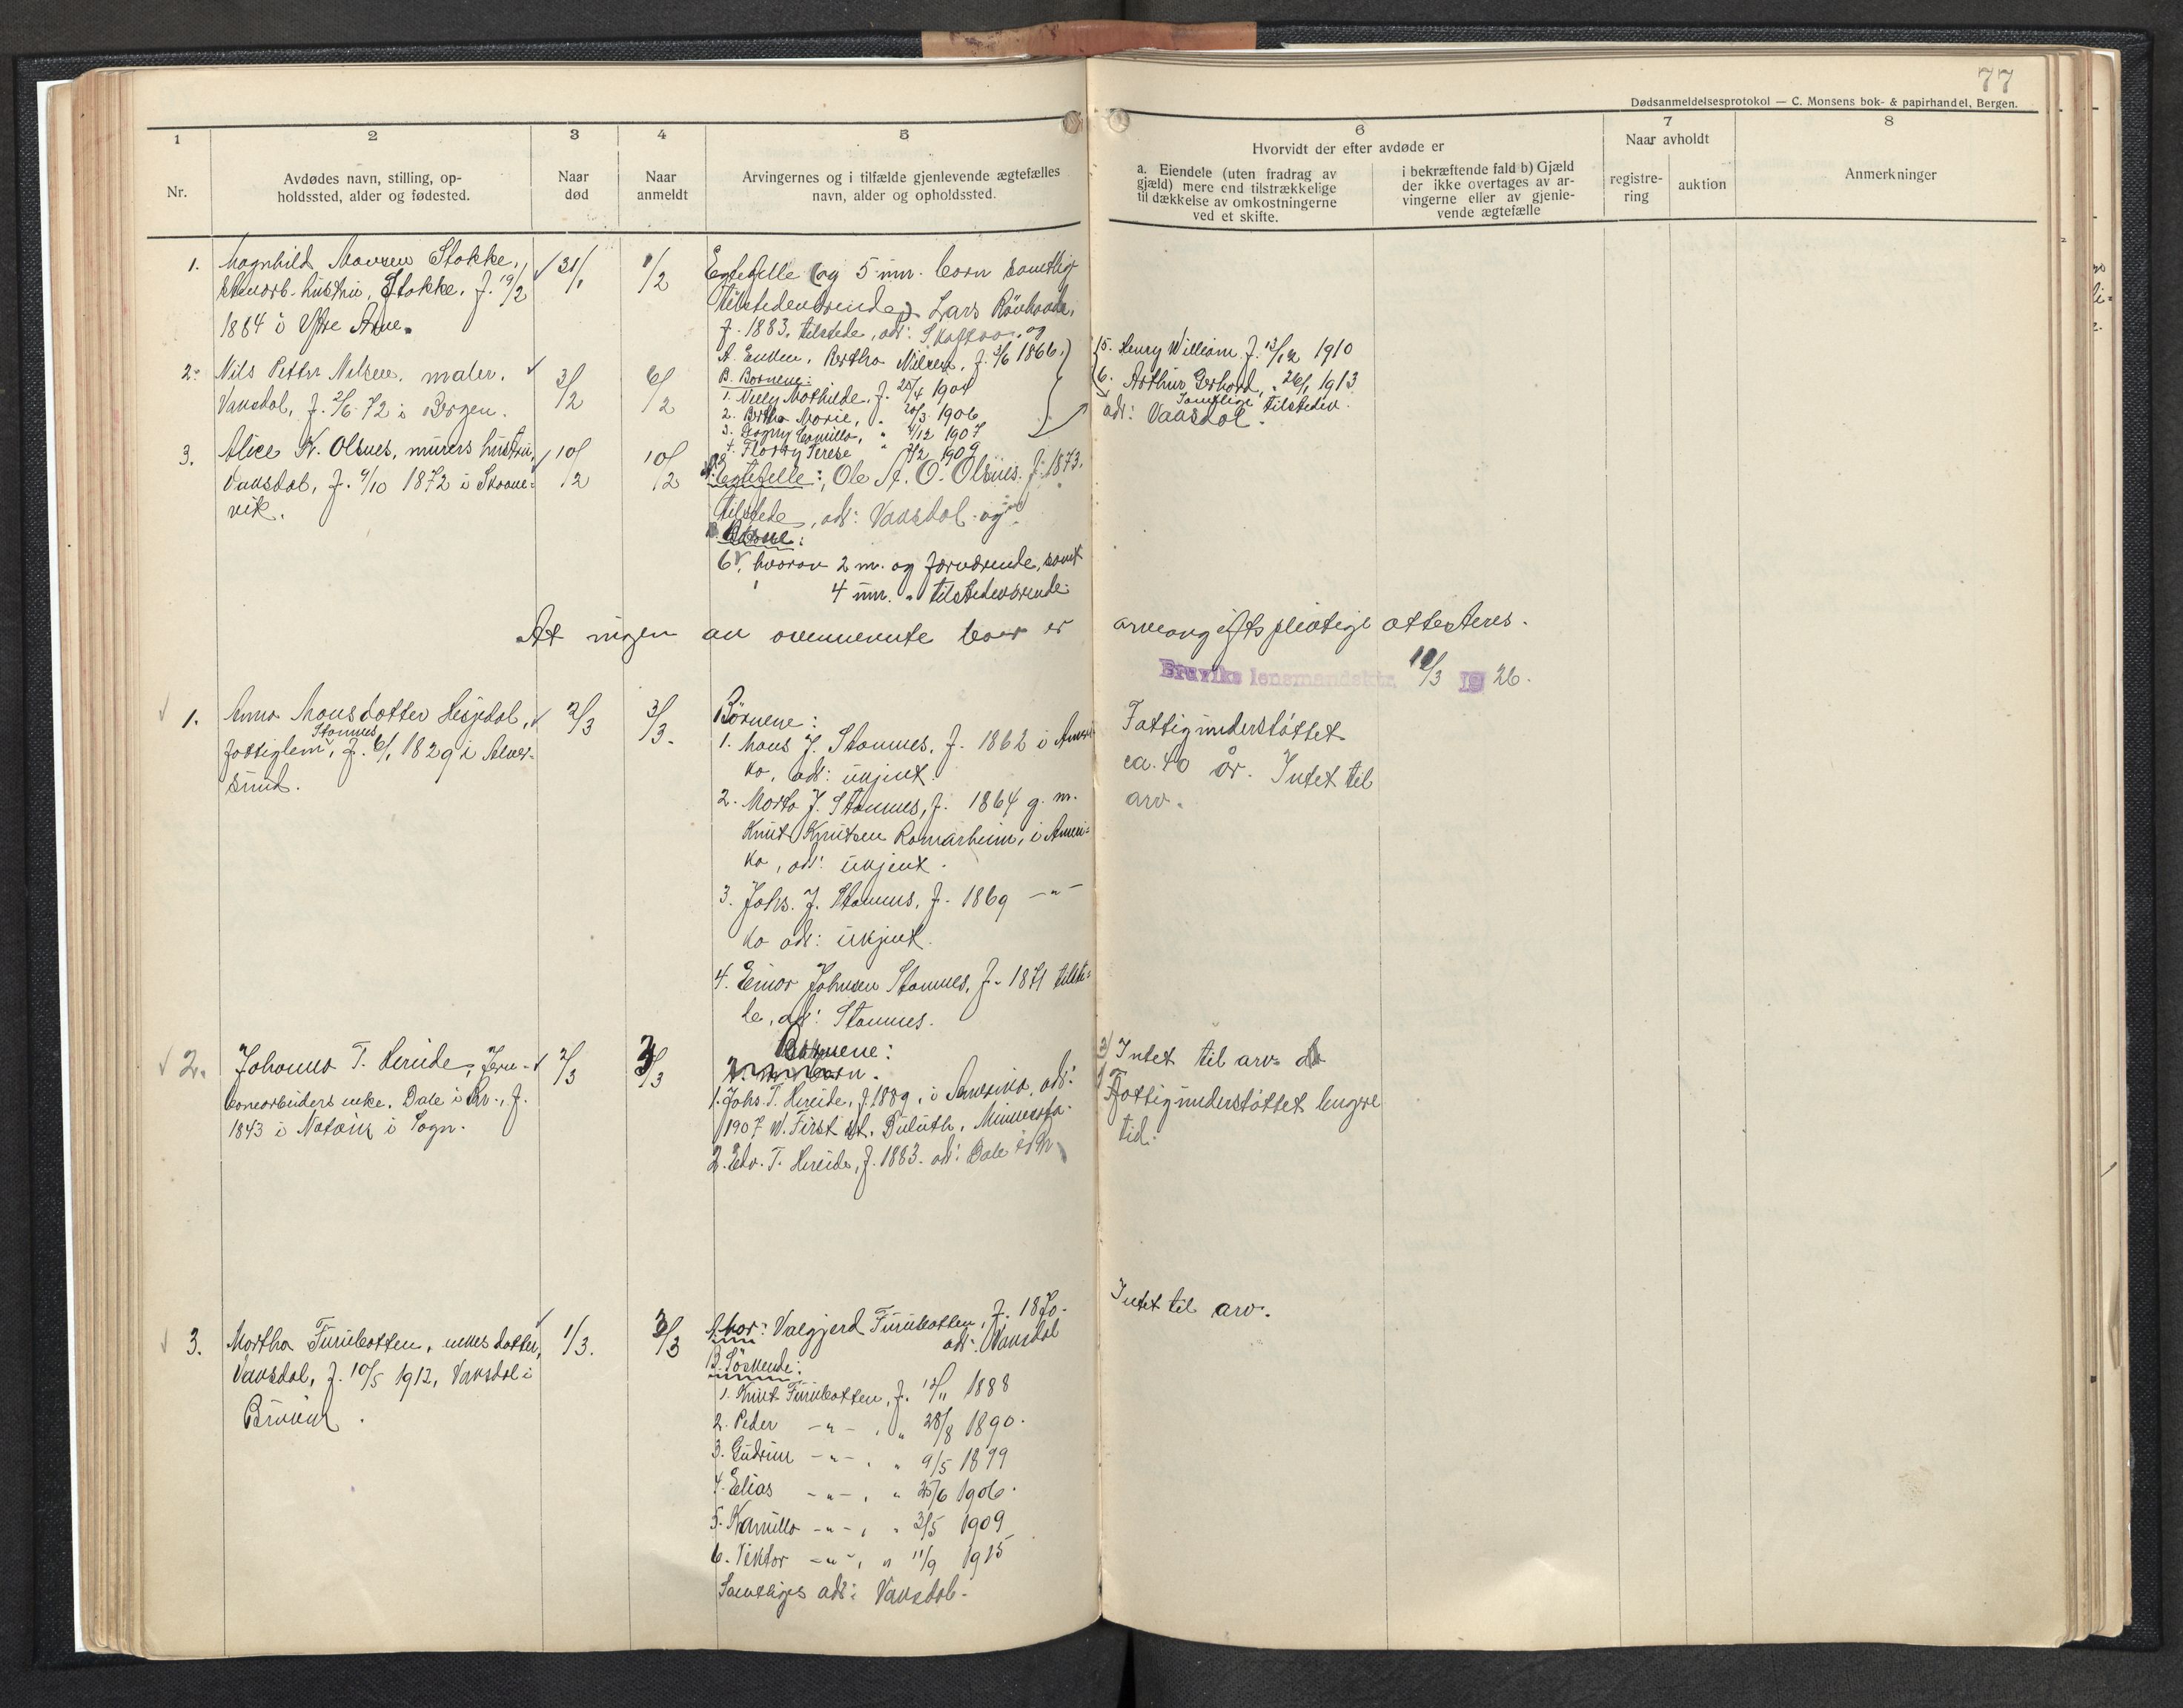 77
Dødsanmeldelsesprotokol — C. Monsens bok- & papirhandel, Bergen.
1
2
3
4
5
6
7
8
Nr.
Avdødes navn, stilling, op-
holdssted, alder og fødested.
Naar
død
Naar
anmeldt
Arvingernes og i tilfælde gjenlevende ægtefælles
navn, alder og opholdssted.
Hvorvidt der efter avdøde er
a. Eiendele (uten fradrag av
gjæld) mere end tilstrækkelige
til dækkelse av omkostningerne
ved et skifte.
i bekræftende fald b) Gjæld
der ikke overtages av ar-
vingerne eller av gjenle-
vende ægtefælle
Naar avholdt
registre-
ring
auktion
Anmerkninger
1.
Magnhild Monsen Stokke,
hustru, Stokke. f. 19/2
1884 i Ytre Arne.
31/1
1/2
Egtefelle (og 5 um. born samtlig
tilstedeværende) Lars
f. 1883, tilstede, adr: og
2.
Nils Petter Nilsen. maler.
Vaksdal, f. 2/6 72 i Bergen.
3/2
6/2
A. Enken, Bertha Nilsen, f. 3/6 1866.
B. Bornene:
1. Nelly Mathilde, f. 25/4 1904
2. Bertha Marie, " 20/3 1906
3. Dagny Camilla, " 4/12 1907
4. Terese " 2/2 1909
5. Henry William f. 13/12 1910
6. Arthur Gerhard, " 26/1 1913
Samtlige tilstedev.
adr: Vaksdal.
3.
Alice K. Olsnes, murers hustru,
Vaksdal, f. 9/10 1872 i Skaane-
vik.
10/2
10/2
A. Egtefelle:, Ole O. Olsnes. f. 1873.
tilstede, adr: Vaksdal og
B. Børne:
6, hvorav 2 m. og fraværende, samt
4 um. " tilstedeværende
At ingen av ovennevnte boer er arveavgiftspliktige attesteres.
Bruviks lensmandsktr. 18/3 1926.
1.
Anna Monsdotter Hesjedal,
Stamnes
fattiglem, f. 6/1 1829 i Alver-
sund.
2/3
3/3.
Börnene:
1. Mons J. Stamnes, f. 1862 i Ameri
ka, adr: ukjent.
2. Marta J. Stamnes, f. 1864 g. m.
Knut Knutsen Romarheim, i Ameri-
ka, adr: ukjent.
3. Johs. J. Stamnes, f. 1869 —"—
ka adr: ukjent.
4. Einar Johnsen Stamnes, f. 1871 tilste-
de, adr: Stamnes.
Fattigunderstöttet
ca. 40 år. Intet til
arv.
2.
Johanna T. Hereide, Jern-
banearbeiders enke, Dale i Br., f.
1843 i Natvik i Sogn.
2/3
3/3
Bornene:
1. Johs. T. Hereide, f. 1889, i Amerika, adr:
1907 W. First st. Duluth, Minnesota.
2. Edv. T. Hereide, f. 1883. adr: Dale i Br.
Intet til arv.
Fattigunderstöttet lengre
tid.
3.
Martha Furubotten, enkes datter,
Vaksdal, f. 10/5 1912, Vaksdal i
Bruvik.
1/3.
3/3
A. Mor: Valgjerd Furubotten, f. 1870.
adr: Vaksdal
B. Söskende:
1. Knut Furubotten, f. 12/11 1888
2. Peder —"—, " 28/8 1890.
3. Gudrun —"—, " 9/5 1899
4. Elias —"—, " 25/6 1906.
5. Kamilla —"—, " 3/5 1909
6. Viktor —"—, " 11/9 1915
Samtliges adr: Vaksdal.
Intet til arv.